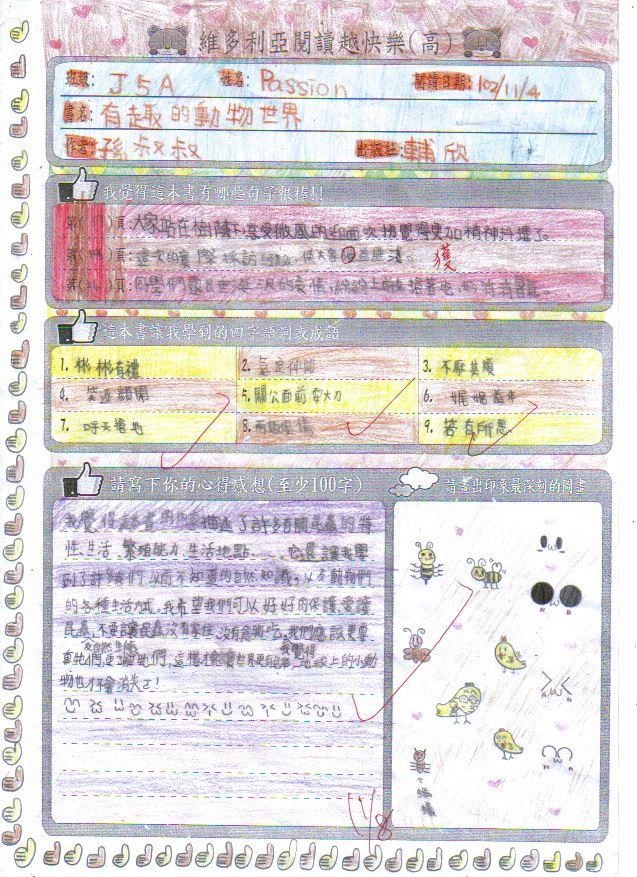 維多利亞閱讀越快樂(高)
班級: J5A 姓名: Passion 閱讀日期: 102/11/4
書名: 有趣的動物世界
作者: 孫叔叔 出版社: 輔欣
我覺得這本書有哪些句子很棒!!
頁: 大家站在樹蔭下享受微風的迎面吹拂覺得更加精神抖擻了。
頁: 這次的實際採訪 使大家 獲
頁: 同學們 的表情,紛紛上前
這本書讓我學到的四字語詞或成語
1. 彬彬有禮 2. 氣定神閒 3. 不厭其煩
4. 笑逐顏開 5. 關公面前耍大刀 6. 娓娓
7. 呼天搶地 8. 9. 若有所思
請寫下你的心得感想(至少100字) 請畫出印象最深刻的圖畫
我覺得這本書的內容描述了許多有關昆蟲的特
性、生活、繁殖能力、生活地點……它還讓我學
到了許多我們以前不知道的自然知識,以及動物們
的各種生活方式。我希望我們可以好好的保護、愛護
昆蟲,不要讓昆蟲沒有家住、沒有食物吃,我們應該要尊
及自然生態 我覺得
重牠們,更了解牠們,這樣才會讓世界更 地球上的小動
物也才會消失了!
11/8